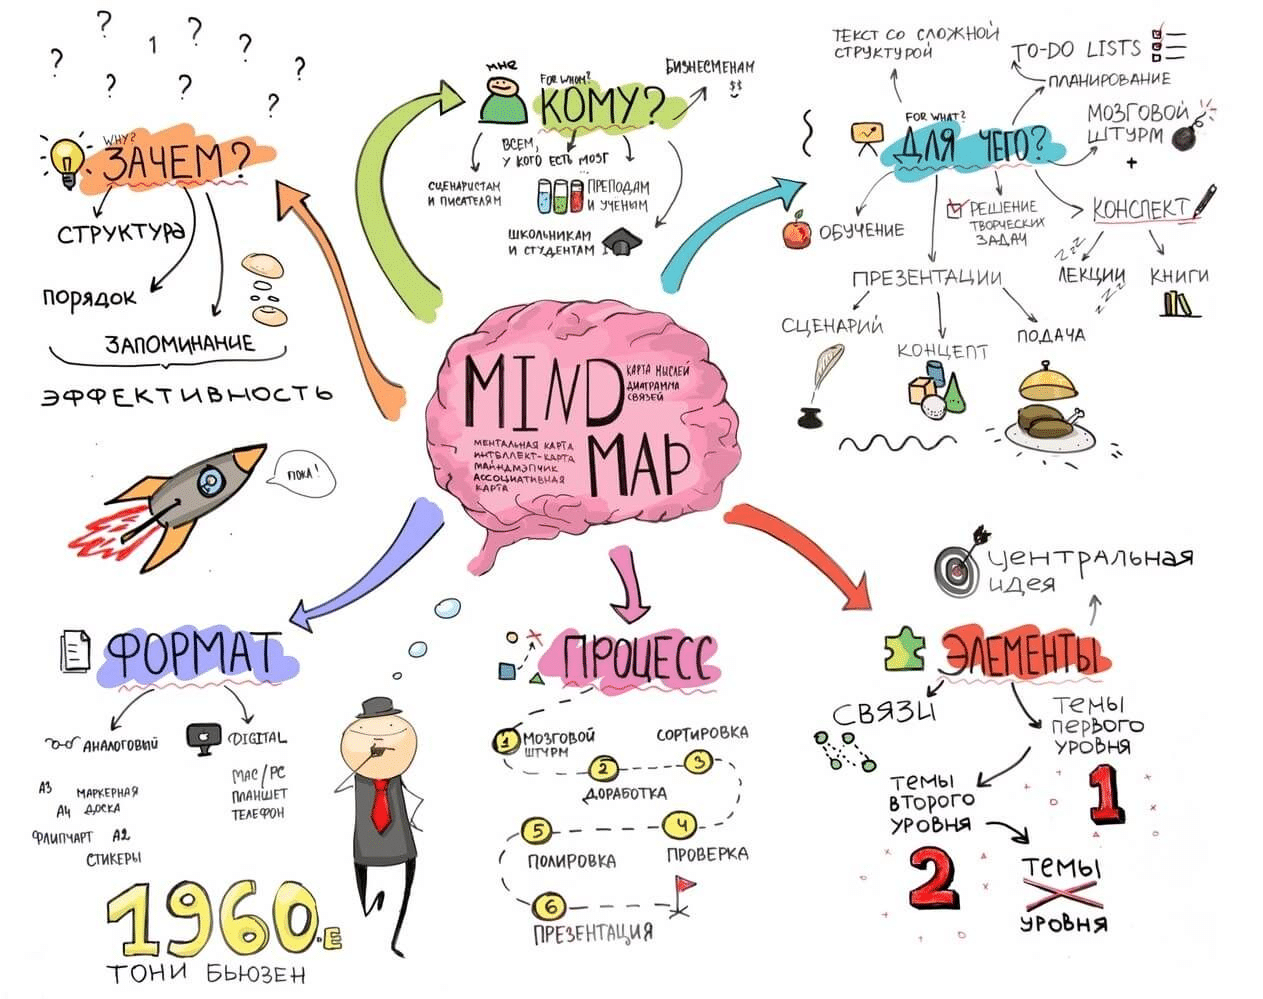 ? ? ? 1 ? ? ? ? ?
WHY?
ЗАЧЕМ?
СТРУКТУРА
ПОРЯДОК
ЗАПОМИНАНИЕ
ЭФФЕКТИВНОСТЬ
ПОКА!
мне
FOR WHOM?
КОМУ?
БИЗНЕСМЕНАМ
$$
ВСЕМ,
У КОГО ЕСТЬ МОЗГ
СЦЕНАРИСТАМ
И ПИСАТЕЛЯМ
ПРЕПОДАМ
И УЧЕНЫМ
ШКОЛЬНИКАМ
И СТУДЕНТАМ
ТЕКСТ СО СЛОЖНОЙ
СТРУКТУРОЙ
TO-DO LISTS
ПЛАНИРОВАНИЕ
FOR WHAT?
ДЛЯ ЧЕГО?
МОЗГОВОЙ
ШТУРМ
+
ОБУЧЕНИЕ
РЕШЕНИЕ
ТВОРЧЕСКИХ
ЗАДАЧ
КОНСПЕКТ
ZZZ
ЛЕКЦИИ
ZZZ
КНИГИ
ПРЕЗЕНТАЦИИ
СЦЕНАРИЙ
КОНЦЕПТ
ПОДАЧА
MIND
КАРТА МЫСЛЕЙ
ДИАГРАММА
СВЯЗЕЙ
MAP
МЕНТАЛЬНАЯ КАРТА
ИНТЕЛЛЕКТ-КАРТА
МАЙНДМЭПЧИК
АССОЦИАТИВНАЯ
КАРТА
ФОРМАТ
АНАЛОГОВЫЙ
А3
МАРКЕРНАЯ
ДОСКА
А4
ФЛИПЧАРТ
А2
СТИКЕРЫ
DIGITAL
MAC/PC
ПЛАНШЕТ
ТЕЛЕФОН
1960-Е
ТОНИ БЬЮЗЕН
ПРОЦЕСС
1 МОЗГОВОЙ
ШТУРМ
2
ДОРАБОТКА
СОРТИРОВКА
3
4
ПРОВЕРКА
5
ПОЛИРОВКА
6
ПРЕЗЕНТАЦИЯ
ЦЕНТРАЛЬНАЯ
ИДЕЯ
ЭЛЕМЕНТЫ
СВЯЗИ
ТЕМЫ
ПЕРВОГО
УРОВНЯ
1
ТЕМЫ
ВТОРОГО
УРОВНЯ
2
ТЕМЫ
X
УРОВНЯ